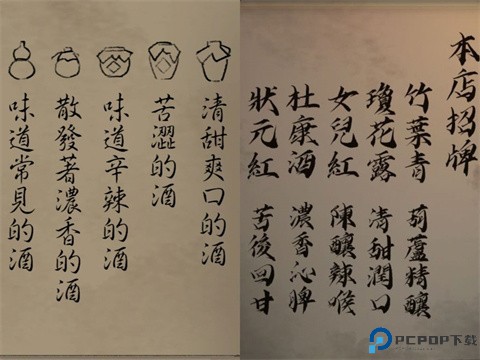 清甜爽口的酒
苦澀的酒
味道辛辣的酒
散發著濃香的酒
味道常見的酒
本店招牌
竹葉青 葫蘆精釀
瓊花露 清甜潤口
女兒紅 陳釀辣喉
杜康酒 濃香沁脾
狀元紅 苦後回甘
PCPOP下载